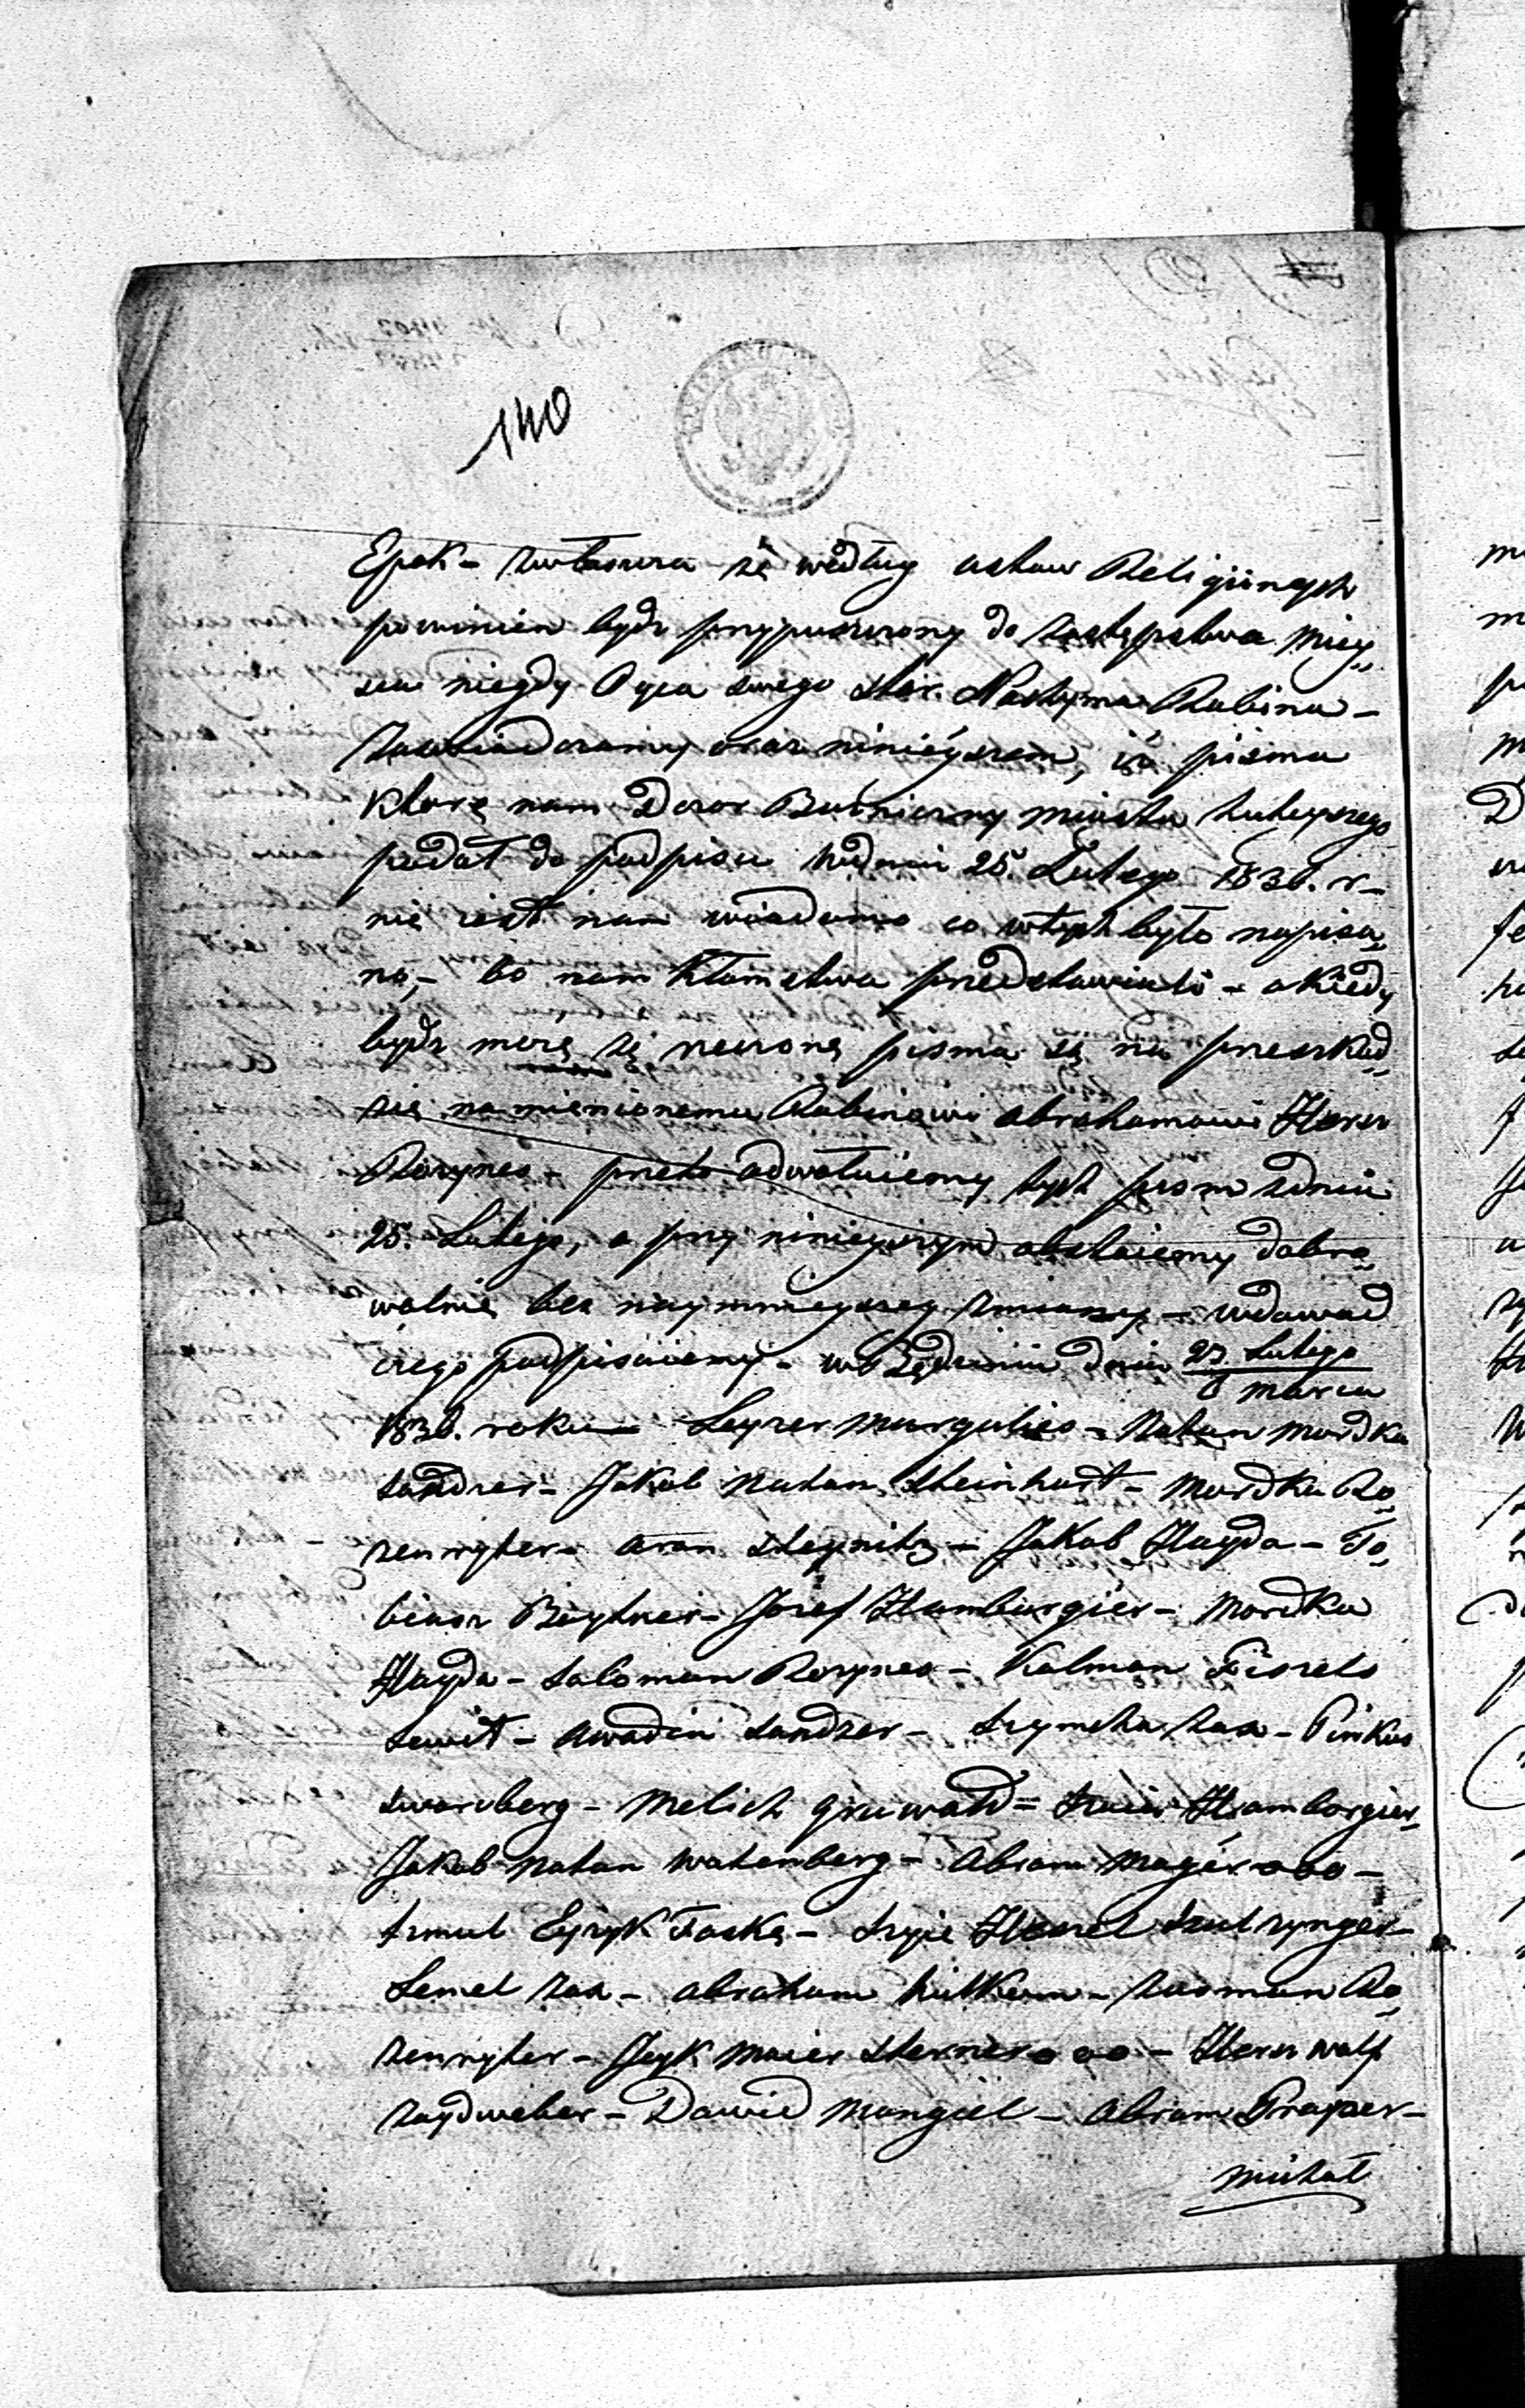 140
Epok – zwłaszcza że według ustaw Religijnych
powinien bydź przypuszczony do zastępstwa miey„
sca niegdy Oyca swego Star. Nachyma Rabina –
zawiadamiamy oraz ninieyszem, iż pisma
które nam Dozor Bużniczny miasta tuteyszego
podał do podpisu w dniu 25. Lutego 1836. r –
nie iest nam wiadomo co w tych było napisa„
no, – bo nam kłamstwa przedstawiali – a kiedy
bydź może że rzeczone pisma są na przeszkod„
zie namienionemu Rabinowi Abrahamowi Hersz
Rozynes – przeto odwołuiemy tych pism z dnia
25. Lutego, a przy ninieyszym obstaiemy dobro„
wolnie bez naymnieyszey zmiany – w dowod
czego podpisuiemy – w Będzinie dnia 23 Lutego
6 marca
1836. roku – Leyzer Margulies – Natan Mordka
Sandzer – Jakob Natan Steinhart – Mordka Ro„
zenzyher – Aron Steynitz – Jakob Hayda – To„
biasz Beytner – Josef Hamburgier – Mordka
Hayda – Salomon Rozynes – Kalman Fiszels
Lewit – Sandzer – Szymcha Zax – Pinkus
Swarcberg – Melich Gruwald = Hamborgier„
Jakob Natan Watenberg – Abram Mayer ooo –
Szmul Eyzyk Faska – Szyie Hersel
Lemel Zax – Abraham – Zusman Ro„
zenzyher – Izyk Maier Sterner ooo – Hersz Wolf
Zaydweber – Dawid Mangiel – Abram –
Michał